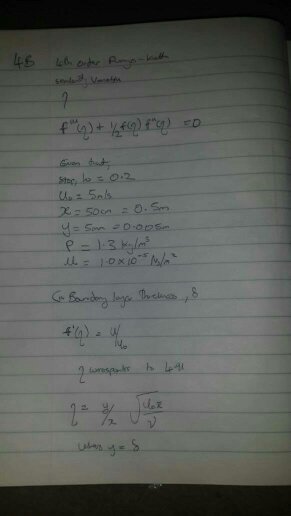 4B 4th order Runge-Kutta
Variables
η
f'''(η) + 1/2 f(η) f''(η) = 0
Given that,
Step, h = 0.2
U₀ = 5m/s
x = 50cm = 0.5m
y = 5mm = 0.005m
ρ = 1.3 kg/m³
μ = 1.0x10⁻⁵ N/m²
Boundary layer Thickness, δ
f'(η) = u/u₀
η corresponds to 4.91
η = y/x √(u₀x/ν)
when y = δ